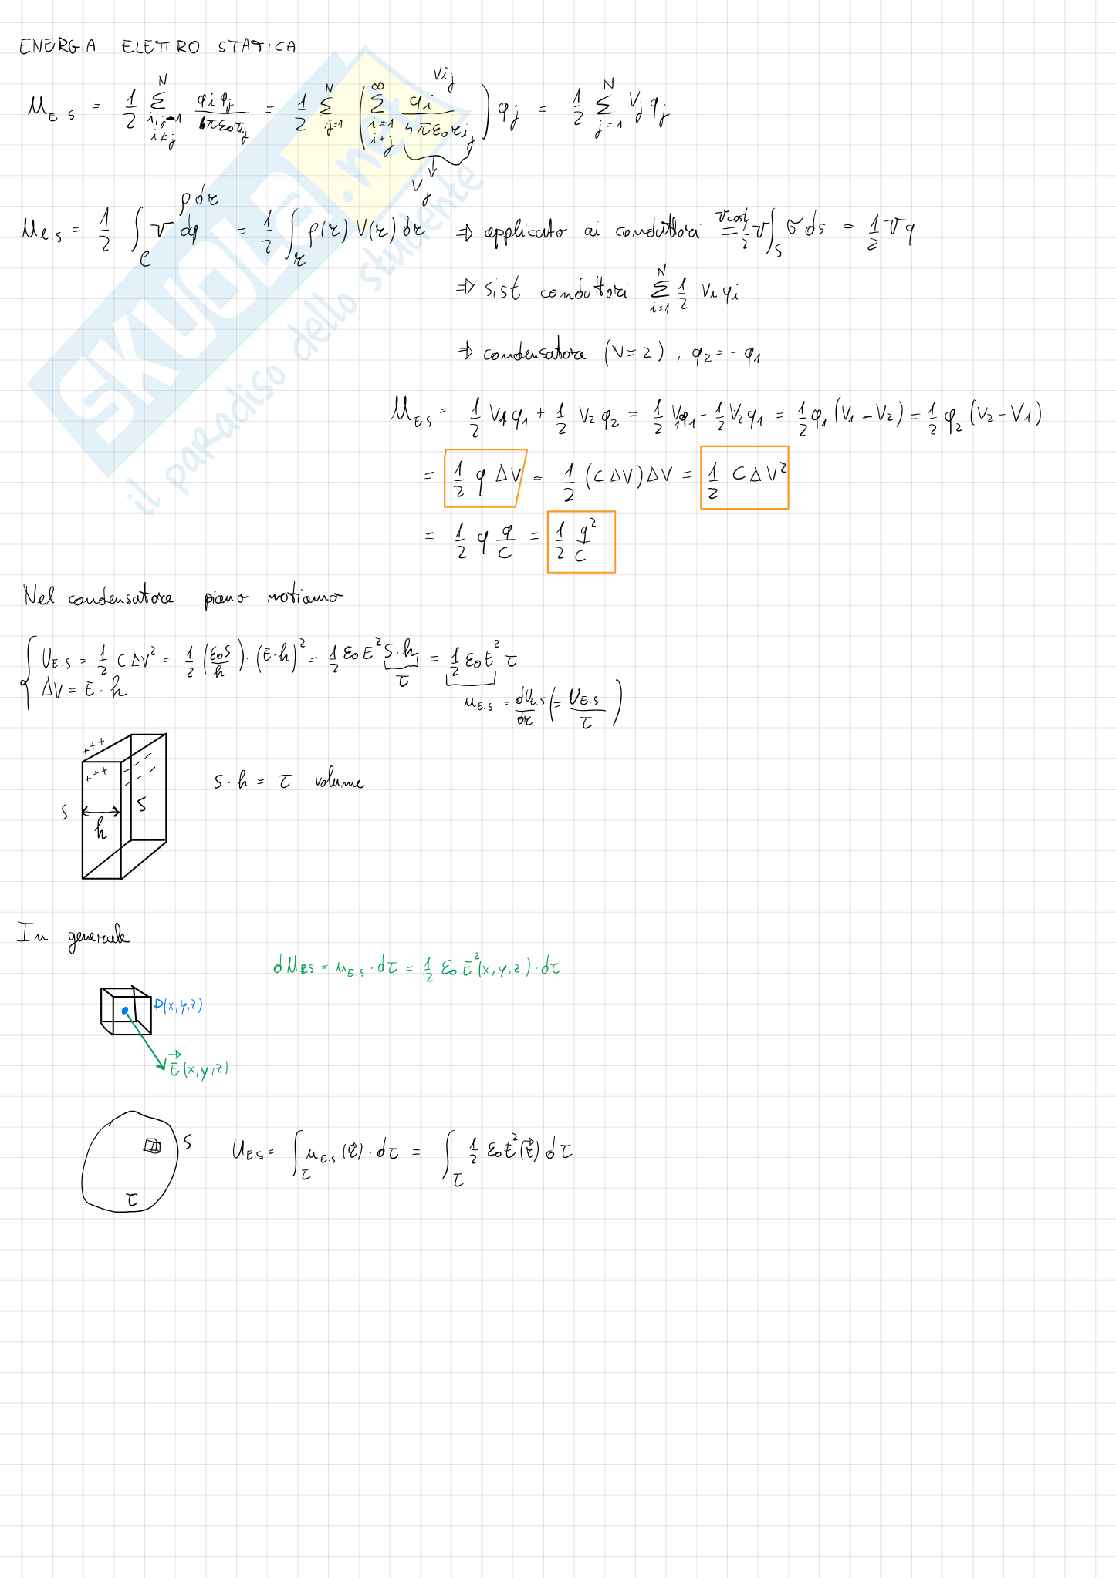 ENERGA ELETTRO STATICA
U_{E S} = 1/2 Σ_{i,j=1, i≠j}^{N} qi qj / 4πε0 rij = 1/2 Σ_{j=1}^{N} ( Σ_{i=1, i≠j}^{∞} qi / 4πε0 rij ) qj = 1/2 Σ_{j=1}^{N} Vj qj
Vij
Vj
ρ dτ
U_{ES} = 1/2 ∫_C V dq = 1/2 ∫_τ ρ(r) V(r) dτ ⇒ applicato ai conduttori = 1/2 V ∫_S σ ds = 1/2 V q
V cost
⇒ sist conduttori Σ_{i=1}^{N} 1/2 Vi qi
⇒ condensatore (N=2), q2 = - q1
U_{ES} = 1/2 V1 q1 + 1/2 V2 q2 = 1/2 V1 q1 - 1/2 V2 q1 = 1/2 q1 (V1 - V2) = 1/2 q2 (V2 - V1)
= 1/2 q ΔV = 1/2 (C ΔV) ΔV = 1/2 C ΔV²
= 1/2 q q/C = 1/2 q²/C
Nel condensatore piano notiamo
U_{E.S} = 1/2 C ΔV² = 1/2 (ε0S/h) · (E·h)² = 1/2 ε0 E² S·h = 1/2 ε0 E² τ
τ
ΔV = E · h
u_{E.S} = dU_{E.S}/dτ (= U_{E.S}/τ)
+++
+++
S
S
h
S·h = τ volume
In generale
dU_{ES} = u_{E.S} · dτ = 1/2 ε0 E²(x,y,z) · dτ
P(x,y,z)
E(x,y,z)
S
τ
U_{ES} = ∫_τ u_{E.S}(r) · dτ = ∫_τ 1/2 ε0 E²(r) dτ
SKUOLA.net
il paradiso dello studente